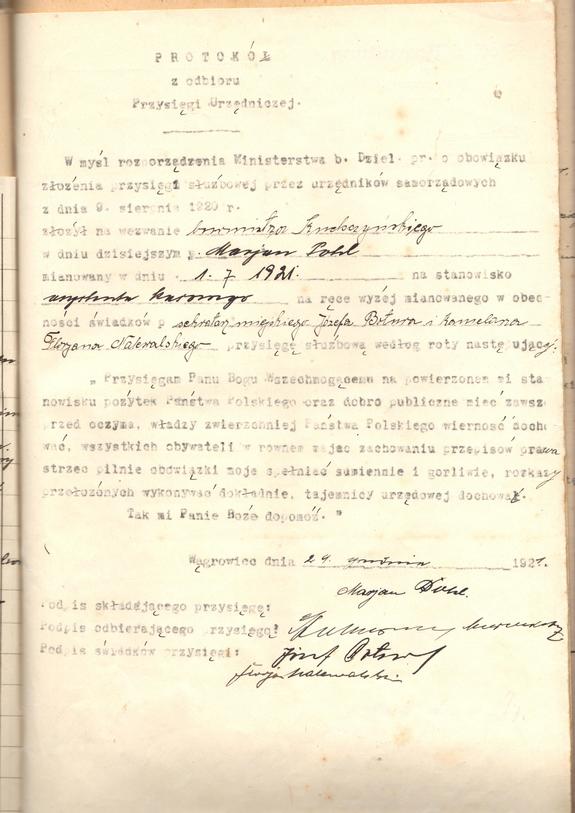 PROTOKÓŁ
z odbioru
Przysięgi Urzędniczej.
W myśl rozporządzenia Ministerstwa b. Dziel. pr. o obowiązku
złożenia przysięgi służbowej przez urzędników samorządowych
z dnia 9. sierpnia 1920 r.
złożył na wezwanie burmistrza Kuchczyńskiego
w dniu dzisiejszym p. Marjan Pohl
mianowany w dniu 1. 7 1921. na stanowisko
asystenta kasowego na ręce wyżej mianowanego w obec-
ności świadków p sekretarz miejskiego Józefa Botura i
Florjana Nalewalskiego przysięgę służbową według roty następującej:
„ Przysięgam Panu Bogu Wszechmogącemu na powierzonem mi sta
nowisku pożytek Państwa Polskiego oraz dobro publiczne mieć zawsze
przed oczyma, władzy zwierzchniej Państwa Polskiego wierność docho
wać, wszystkich obywateli w równem mając zachowaniu przepisów prawa
strzec pilnie obowiązki moje spełniać sumiennie i gorliwie, rozkazy
przełożonych wykonywać dokładnie, tajemnicy urzędowej dochować.
Tak mi Panie Boże dopomóż. "
Wągrowiec dnia 29. grudnia 1921.
Marjan Pohl.
Podpis składającego przysięgę:
Podpis odbierającego przysięgę:
Podpis świadków przysięgi:
Józef
Florjan Nalewalski.